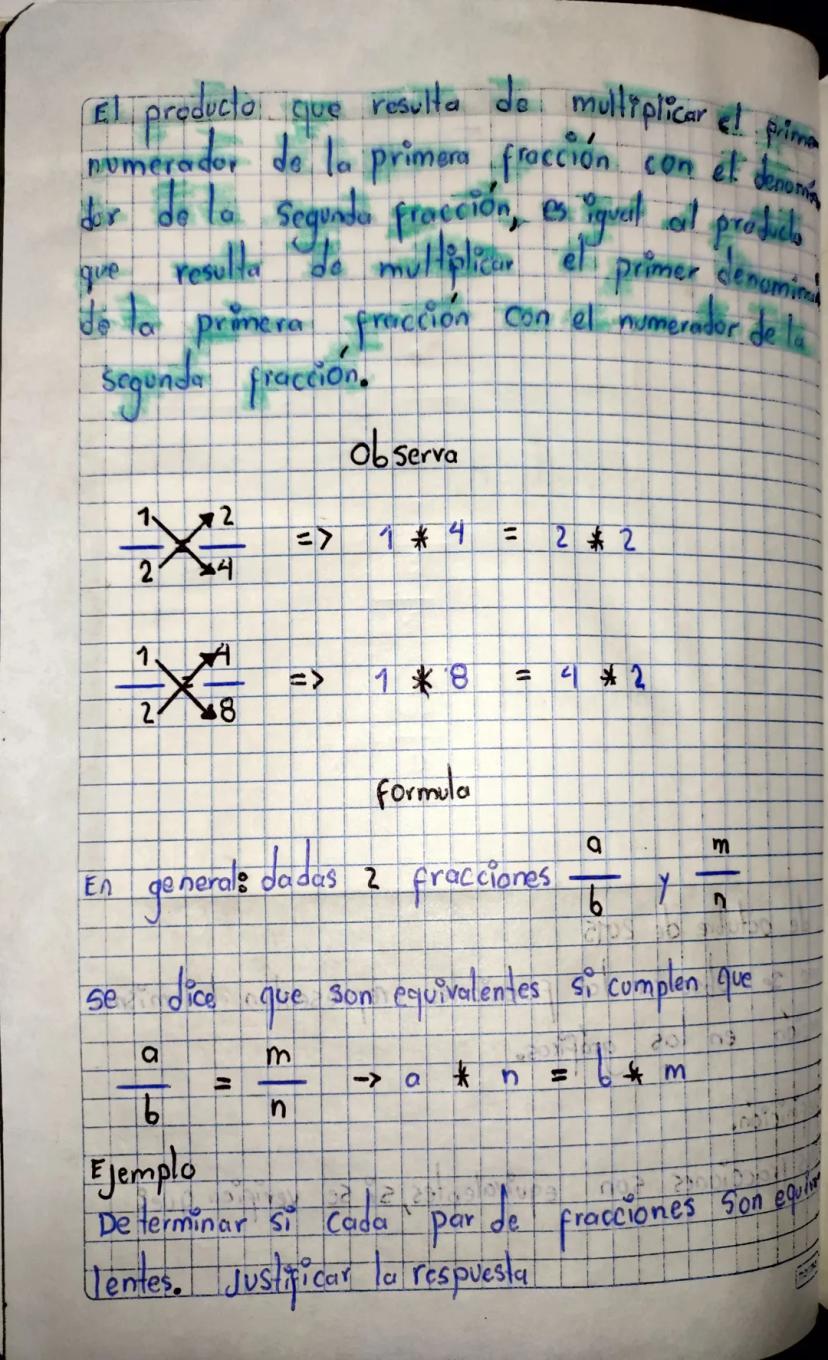 El producto que resulta de multiplicar el prime
numerador de la primera fracción con el denomi
dor de la segunda fracción, es igual al producto
que resulta de multiplicar el primer denomina
de la primera fracción con el numerador de la
segunda fracción.
Observa
1 2
2 4 => 1 * 4 = 2 * 2
1 4
2 = 8 => 1 * 8 = 4 * 2
formula
En general: dadas 2 fracciones a/b y m/n
se dice que son equivalentes si cumplen que
a/b = m/n -> a * n = b * m
Ejemplo
Determinar si cada par de fracciones son equiva
lentes. Justificar la respuesta